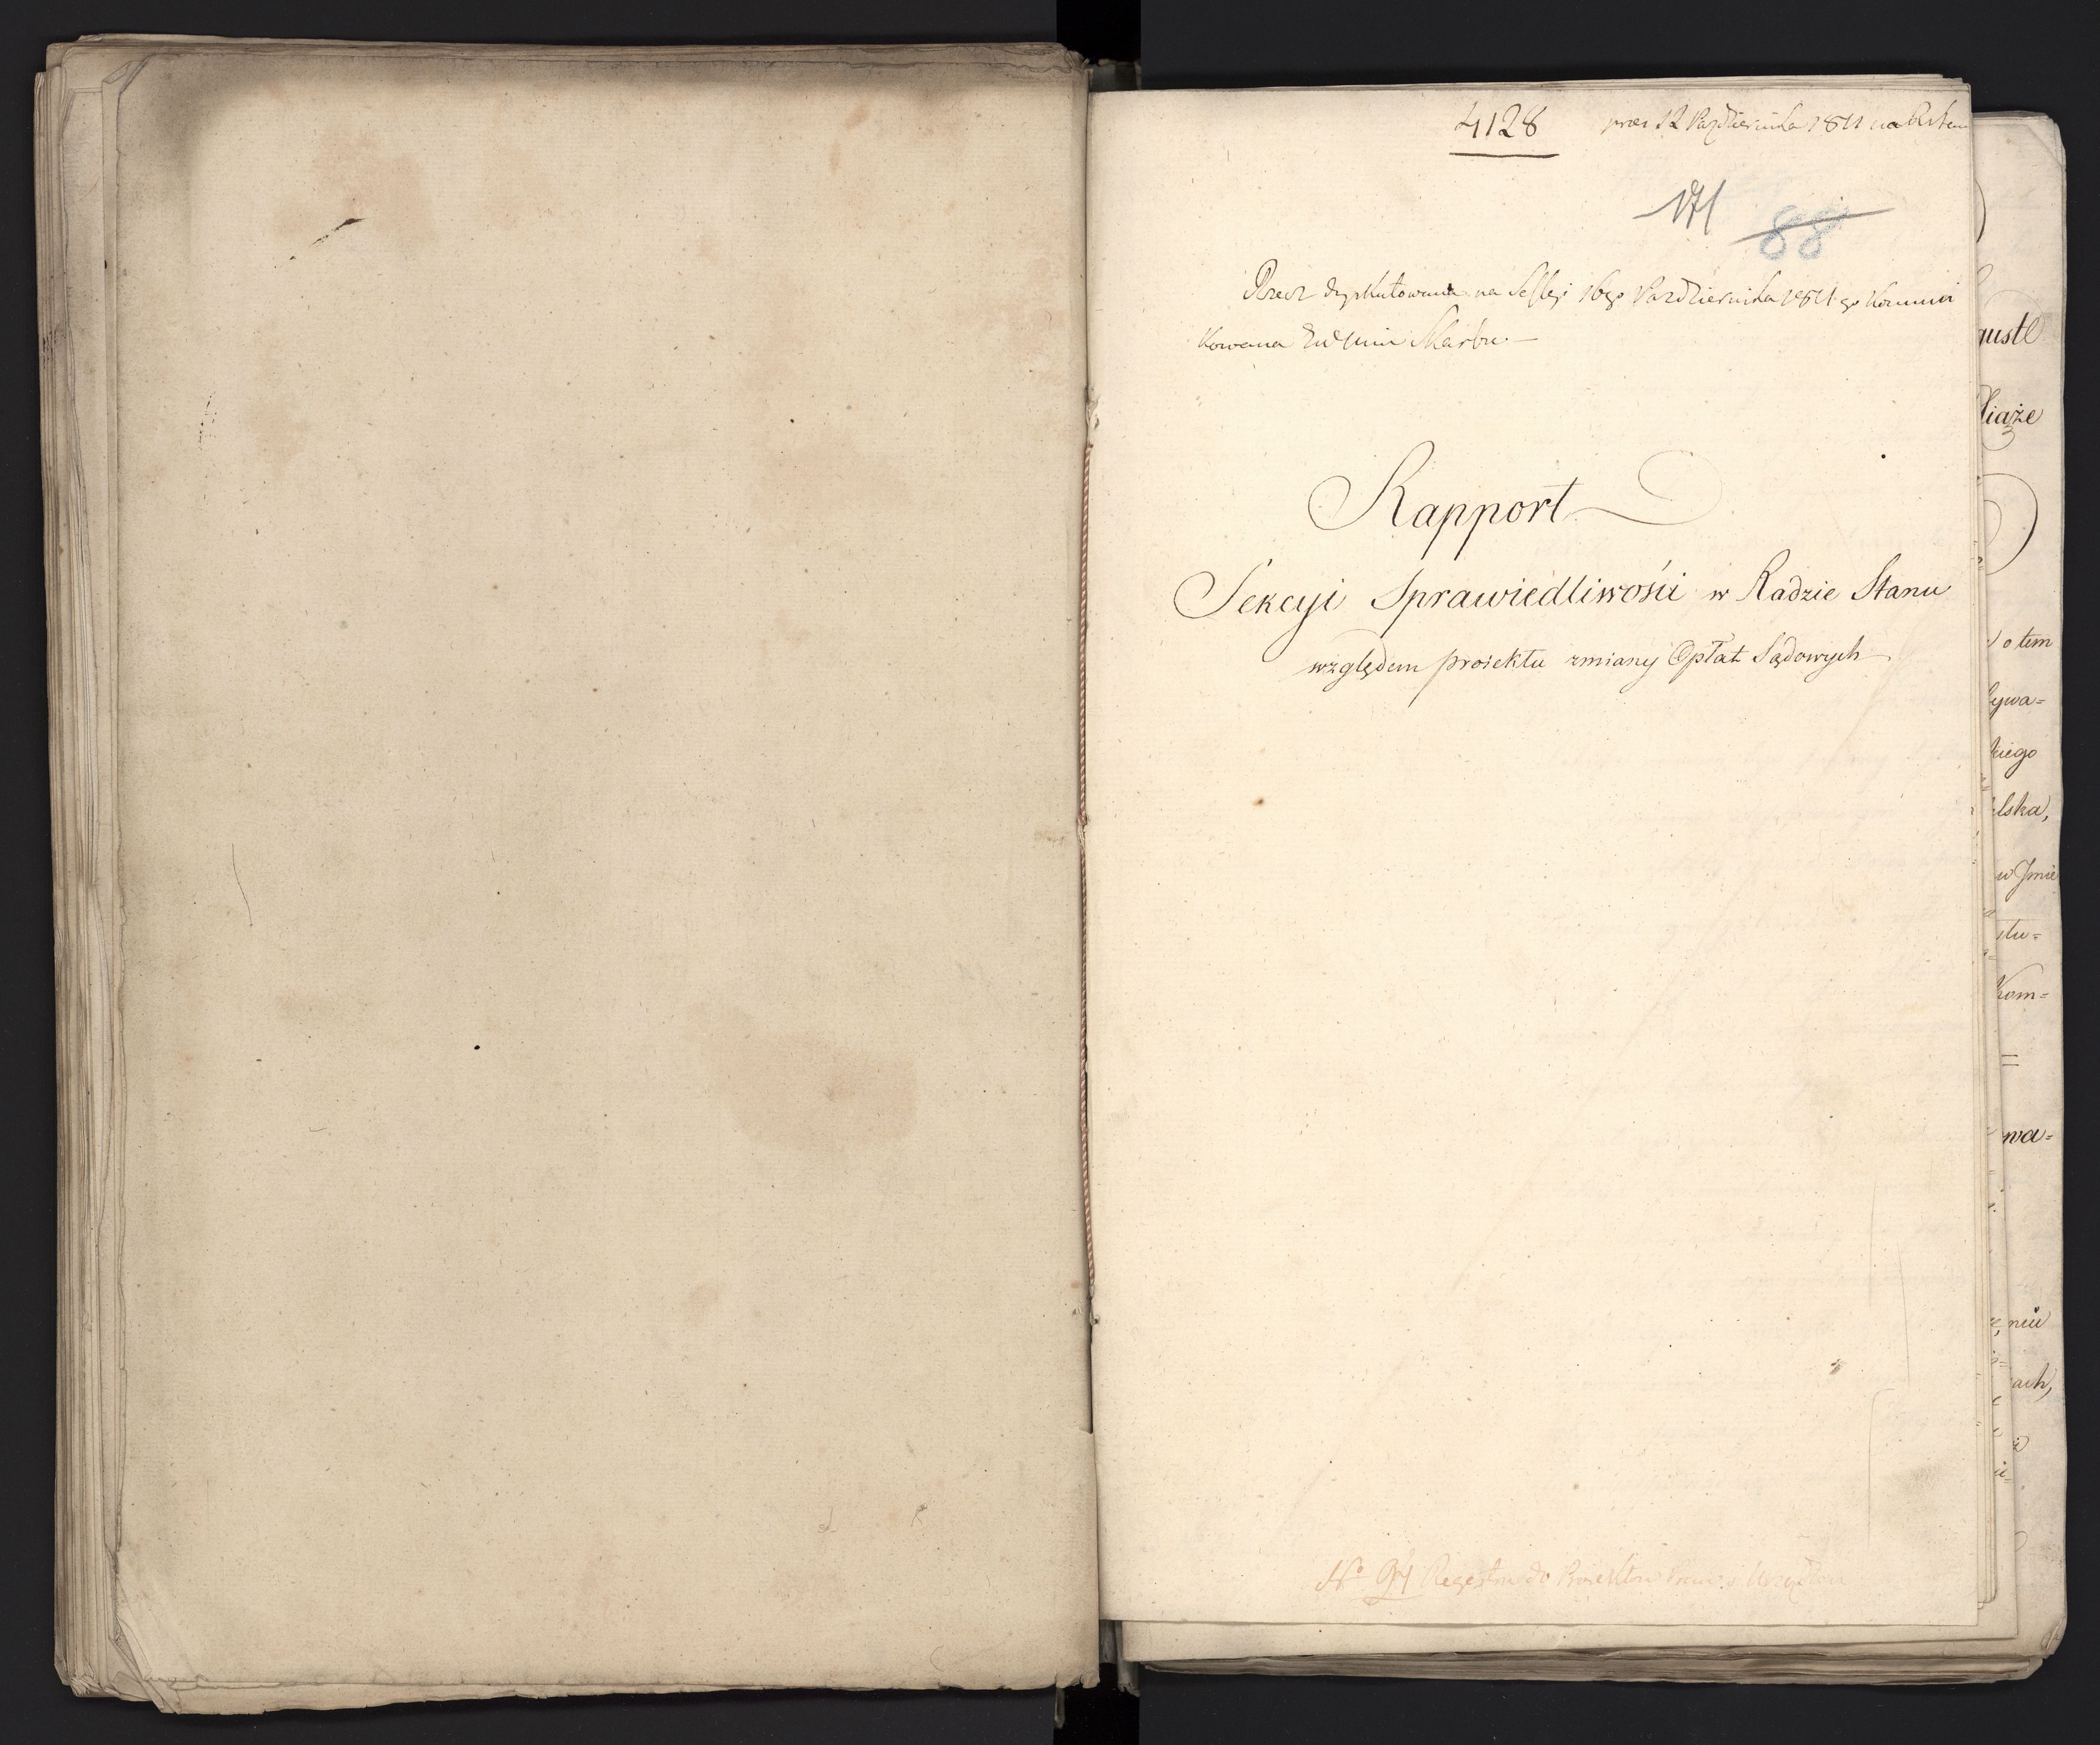 4128 pres 12 Pazdziernika 1811 na
171 88
Rzecz dyskutowana na Sessyi 16go Pazdziernika 1811 go Kommuni
kowana Min Skarbu.—
Rapport
Sekcyi Sprawiedliwości w Radzie Stanu
względem proiektu zmiany Opłat Sądowych
No 94 Regestru do Proiektow Praw i Urządzeń
guste
iąże
o tem
ywa=
kiego
lska,
w Jmie
stu=
Kom=
=
wa=
niu
ach,